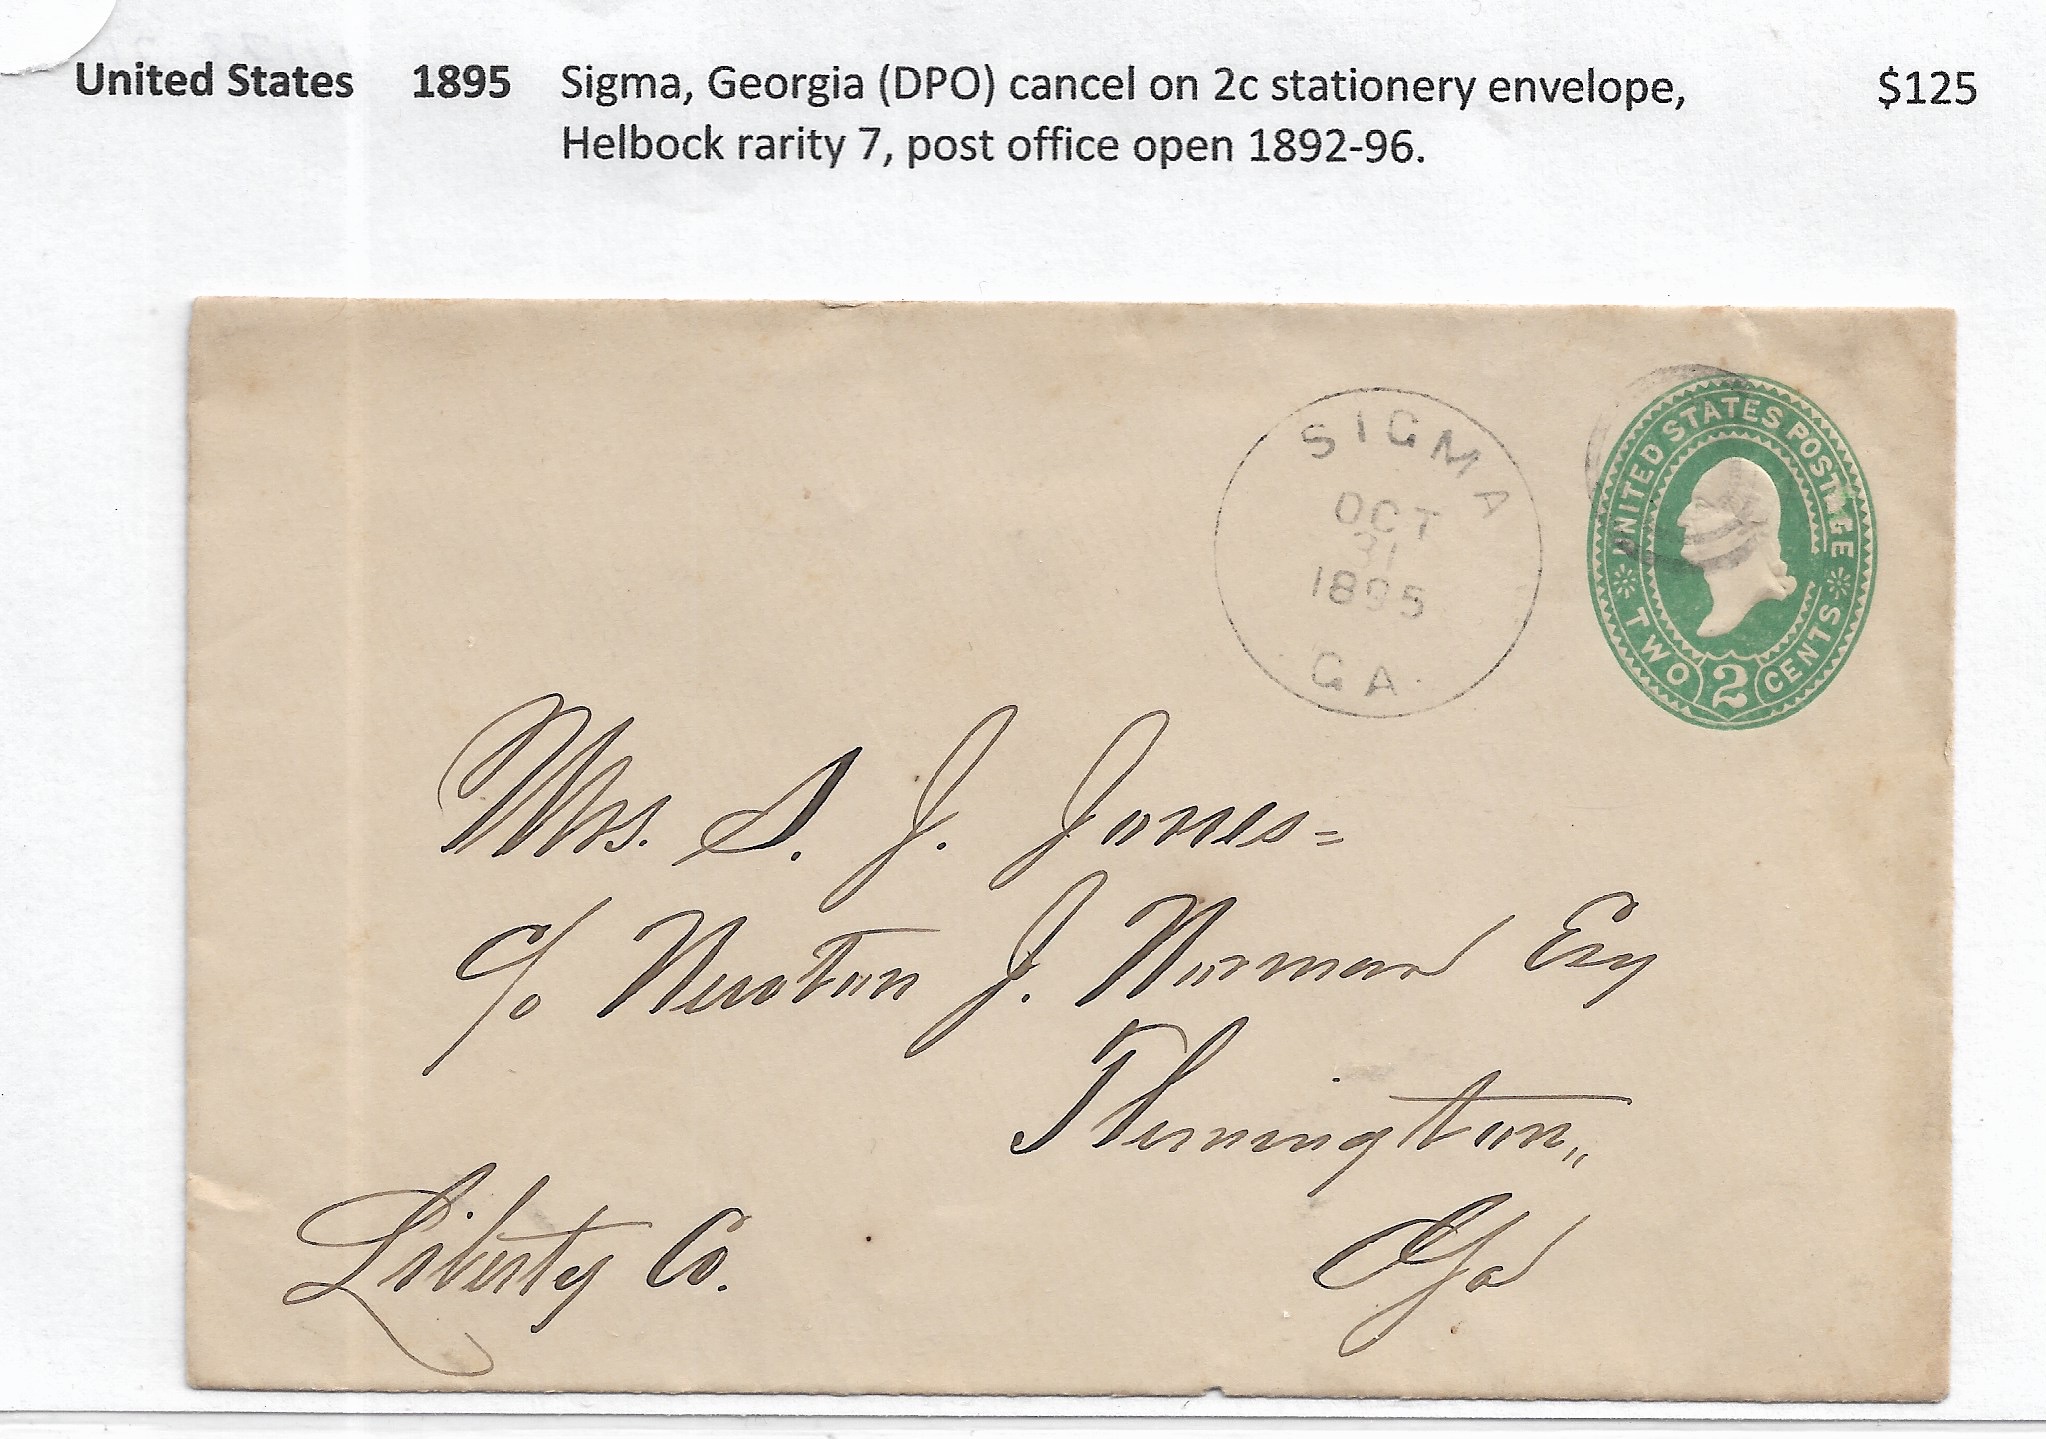 United States 1895 Sigma, Georgia (DPO) cancel on 2c stationery envelope, $125
Helbock rarity 7, post office open 1892-96.
SIGMA
OCT
31
1895
GA.
UNITED STATES POSTAGE
TWO 2 CENTS
Mrs. S. J. Jones=
c/o Newton J. Norman Esq
Flemington,,
Liberty Co. Ga